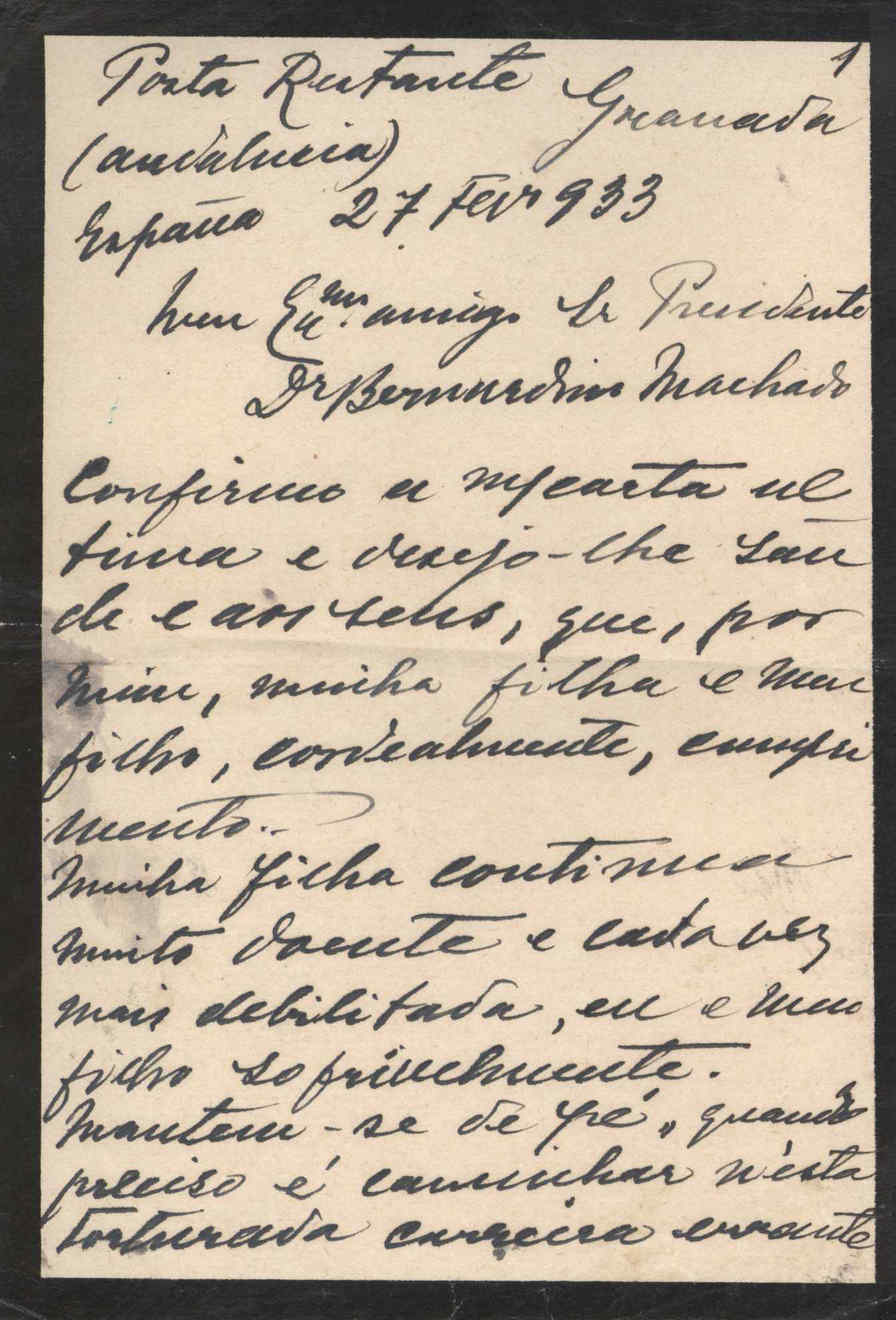 1
Posta Restante Granada
(Andalucia)
España 27 Fevr 933
Meu Exmo. amigo Sr Presidente
Dr Bernardino Machado
Confirmo a m/carta ul
tima e desejo-lhe saú
de e aos seus, que, por
mim, minha filha e meu
filho, cordealmente, cumpri
mento..
Minha filha continua
muito doente e cada vez
mais debilitada, eu e meu
filho sofrívelmente.
Mantem-se de pé, quando
preciso é caminhar n'esta
torturada carreira errante